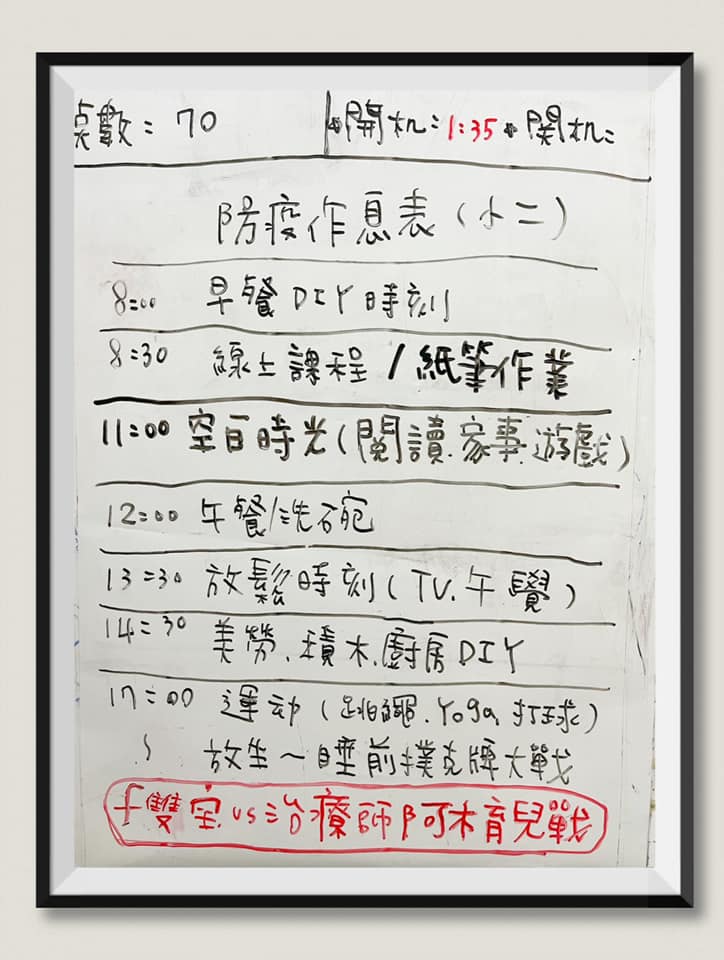 點數：70 開机：1:35 開机：
防疫作息表（小二）
8:00 早餐DIY時刻
8:30 線上課程/紙筆作業
11:00 空白時光(閱讀.家事.遊戲)
12:00 午餐/洗碗
13:30 放鬆時刻(TV.午覺)
14:30 美勞.積木.廚房DIY
17:00 運动(跳繩.Yoga.打球)
~ 放生～睡前撲克牌大戰
f雙宝vs治療師阿木育兒戰